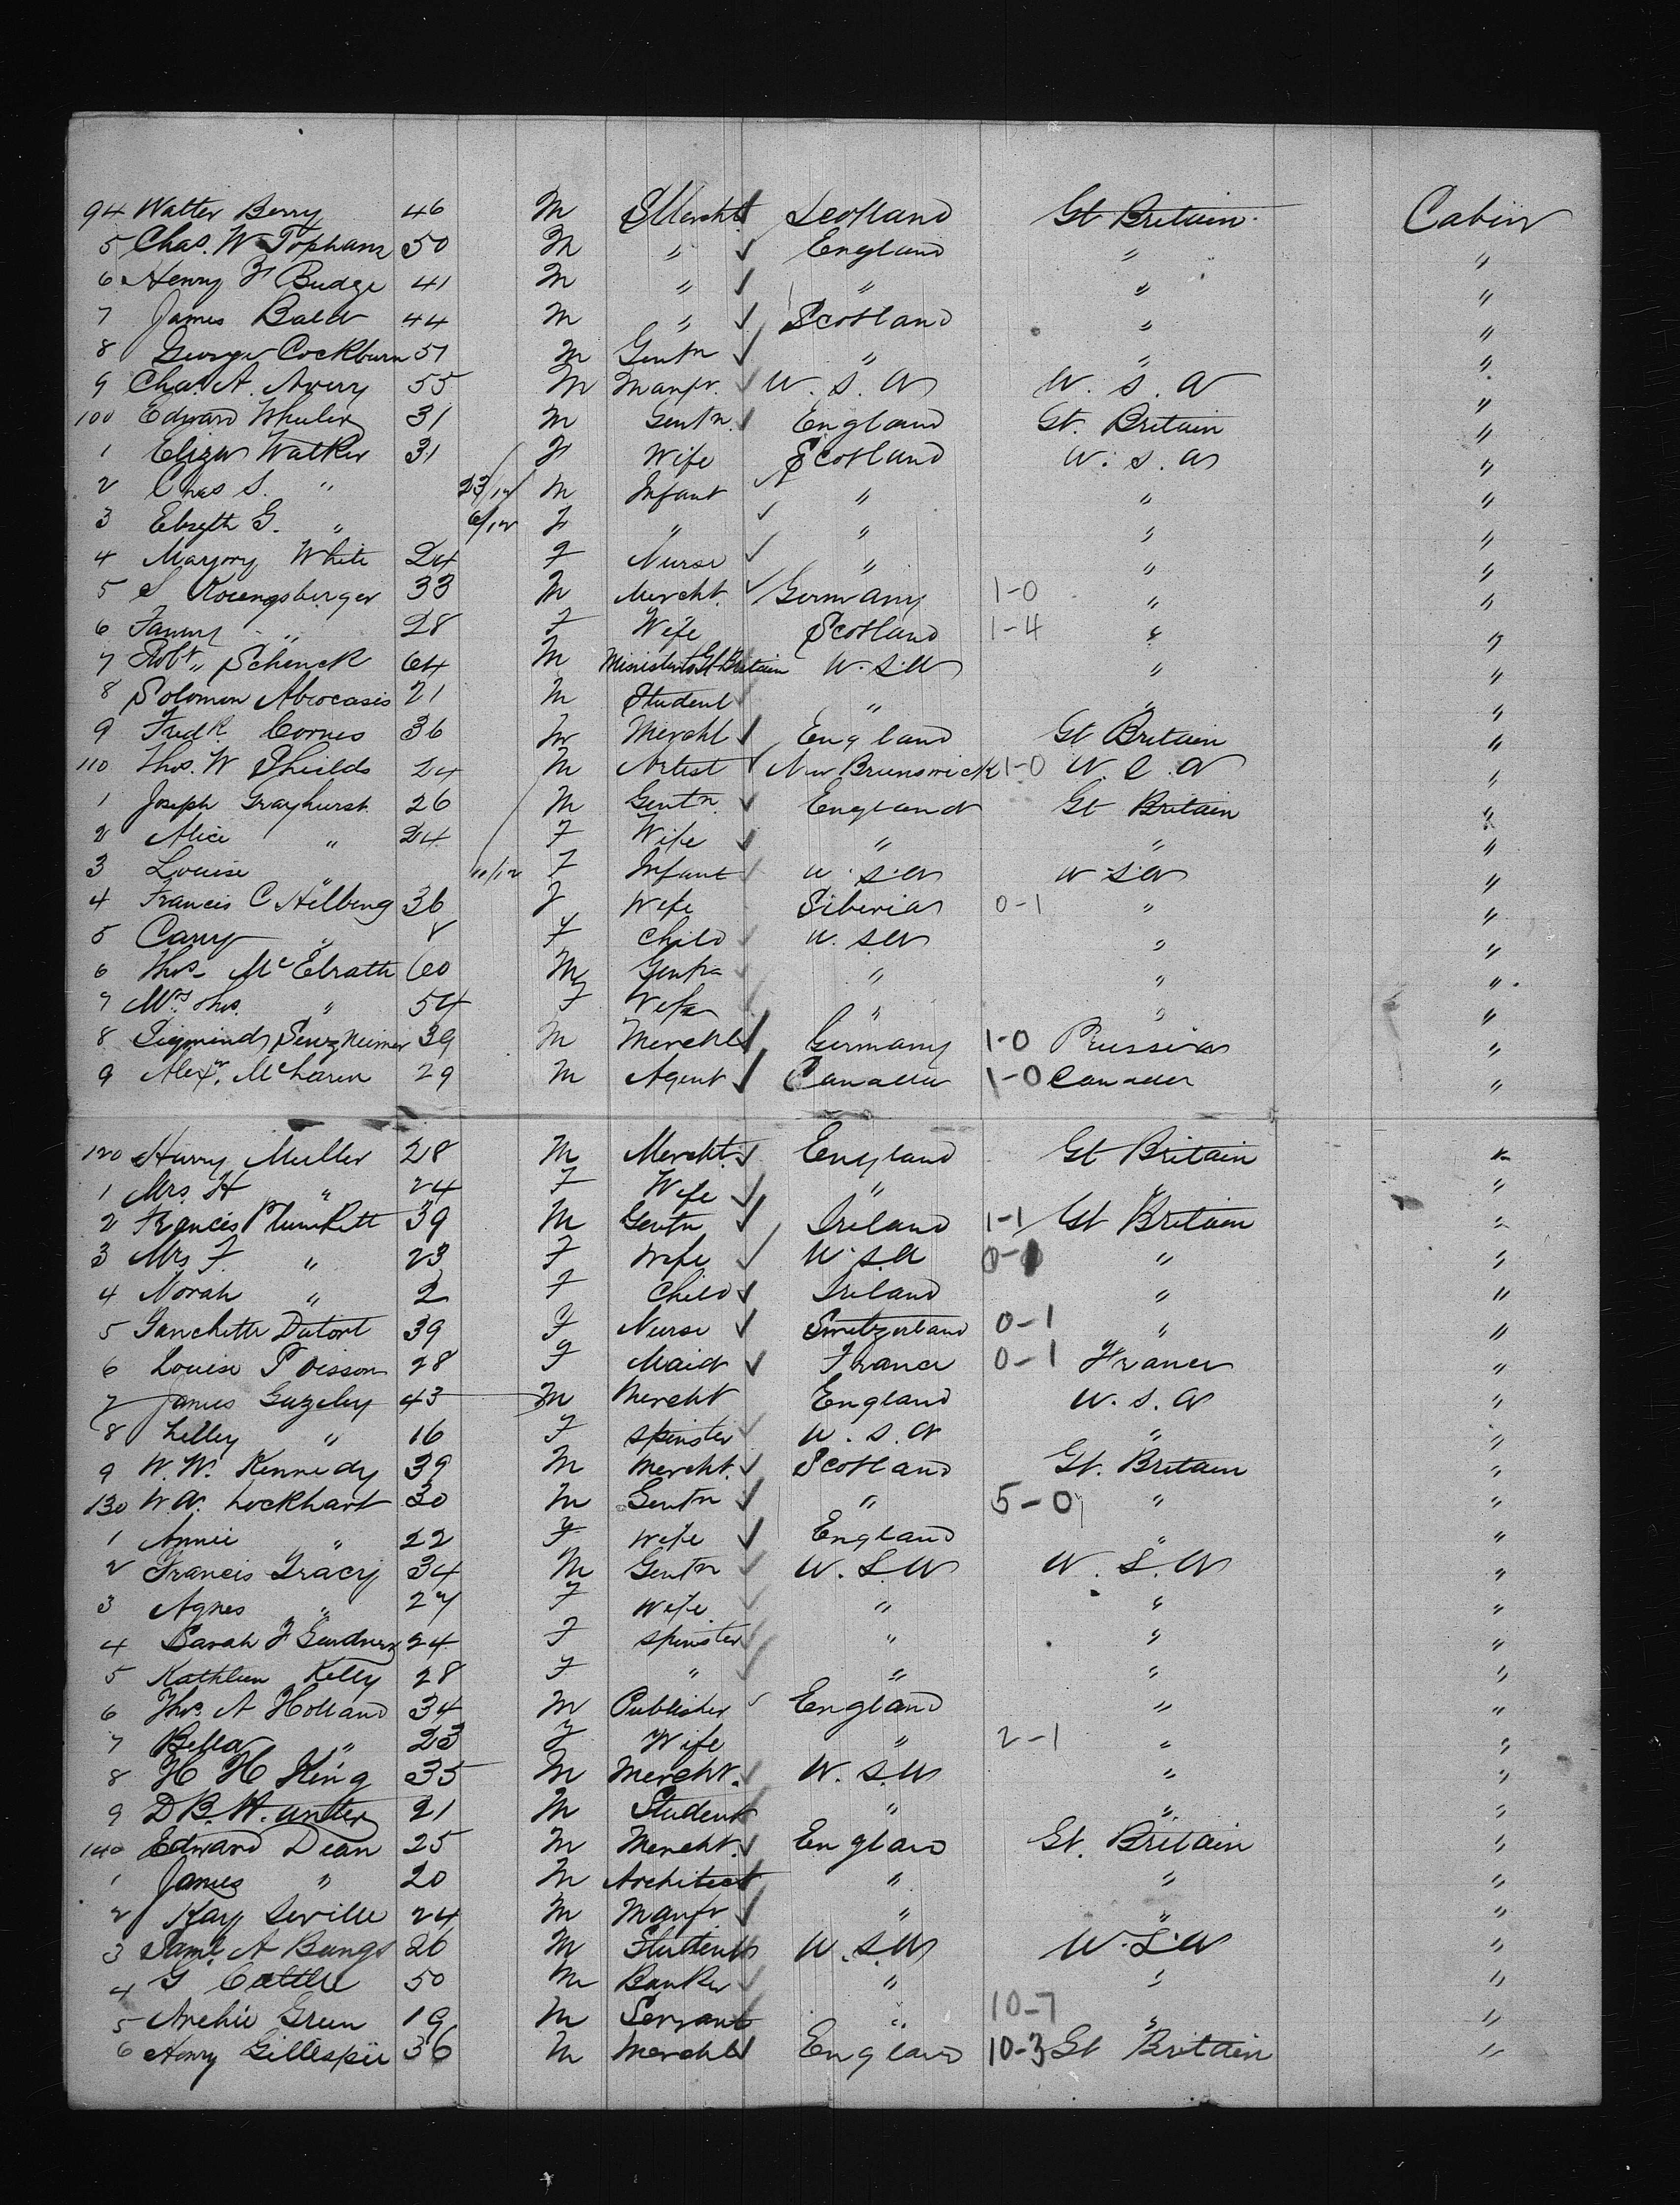 94 Walter Berry 46 M Mercht Scotland Gt Britain Cabin
5 Chas. W Topham 50 M " England " "
6 Henry F Budge 41 M " " " "
7 James Bald 44 M " Scotland " "
8 George Cockburn 51 M Gentn " " "
9 Chas. A. Avery 55 M Manfr. U. S. A U. S. A "
100 Edward Wheeler 31 M Gentn. England Gt. Britain "
1 Eliza Walker 31 F Wife Scotland U. S. A "
2 Chas S. " 23/12 M Infant " " "
3 Elsyth G. " 6/12 F " " " "
4 Marjory White 24 F Nurse " " "
5 S 33 M Mercht. Germany 1-0 " "
6 Fanny " 28 F Wife Scotland 1-4 " "
7 Robt. Schenck 64 M Minister to Gt Britain U. S. A " "
8 Solomon 21 M Student " " "
9 Fredk. Cornes 36 M Mercht England Gt Britain "
110 Thos. W Shields 24 M Artist New Brunswick 1-0 U. S. A "
1 Joseph Grayhurst 26 M Gentn. England Gt Britain "
2 Alice " 24 F Wife " " "
3 Louise " 10/12 F Infant U. S. A U S A "
4 Francis C Hilberg 36 F Wife Siberia 0-1 " "
5 Carry " 8 F Child U. S. A " "
6 Thos. McElrath 60 M Gentn " " "
7 Mrs. Thos. " 54 F Wife " " "
8 Sigmind 39 M Mercht Germany 1-0 Prussia "
9 Alexr. McLaren 29 M Agent Canada 1-0 Canada "
120 Harry Muller 28 M Mercht. England Gt Britain "
1 Mrs. H " 24 F Wife " " "
2 Francis Plunkett 39 M Gentn Ireland 1-1 Gt Britain "
3 Mrs F. " 23 F Wife U. S. A " "
4 Norah " 2 F Child Ireland " "
5 Fanchette Dutort 39 F Nurse Switzerland 0-1 " "
6 Louise Poisson 28 F Maid France 0-1 France "
7 James Gazeley 43 M Mercht England U. S. A "
8 Lilley " 16 F Spinster U. S. A " "
9 W. W. Kennedy 39 M Mercht. Scotland Gt. Britain "
130 W A. Lockhart 30 M Gentn " 5-0 " "
1 Annie " 22 F Wife England " "
2 Francis Tracy 34 M Gentn U. S. A U. S. A "
3 Agnes " 27 F Wife " " "
4 Sarah F Gardner 24 F Spinster " " "
5 Kathleen Kelly 28 F " " " "
6 Thos. A Holland 34 M Publisher England " "
7 Bella " 23 F Wife " 2-1 " "
8 H H King 35 M Mercht. U. S. A " "
9 D B. Hunter 21 M Student " " "
140 Edward Dean 25 M Mercht. England Gt. Britain "
1 James " 20 M Architect " " "
2 Kay Seville 24 M Manfr " " "
3 Saml. A Bangs 26 M Student U. S. A U. S. A "
4 G Cattle 50 M Banker " " "
5 Archie Green 19 M Servant " 10-7 " "
6 Henry Gillespie 36 M Mercht England 10-3 Gt Britain "